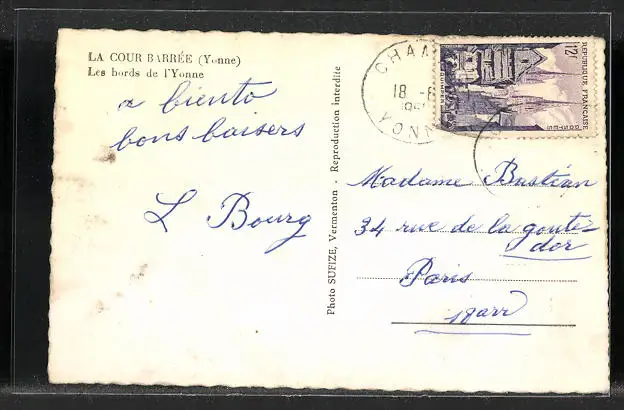 LA COUR BARRÉE (Yonne)
Les bords de l'Yonne
a biento
bons baisers
L Bourg
Photo SUFIZE, Vermenton . Reproduction interdite
CHAM
18 -6
YONN
12F
REPUBLIQUE FRANÇAISE
POSTES
QUIMPER
Madame Bastian
34 rue de la goute
dor
Paris
18arr